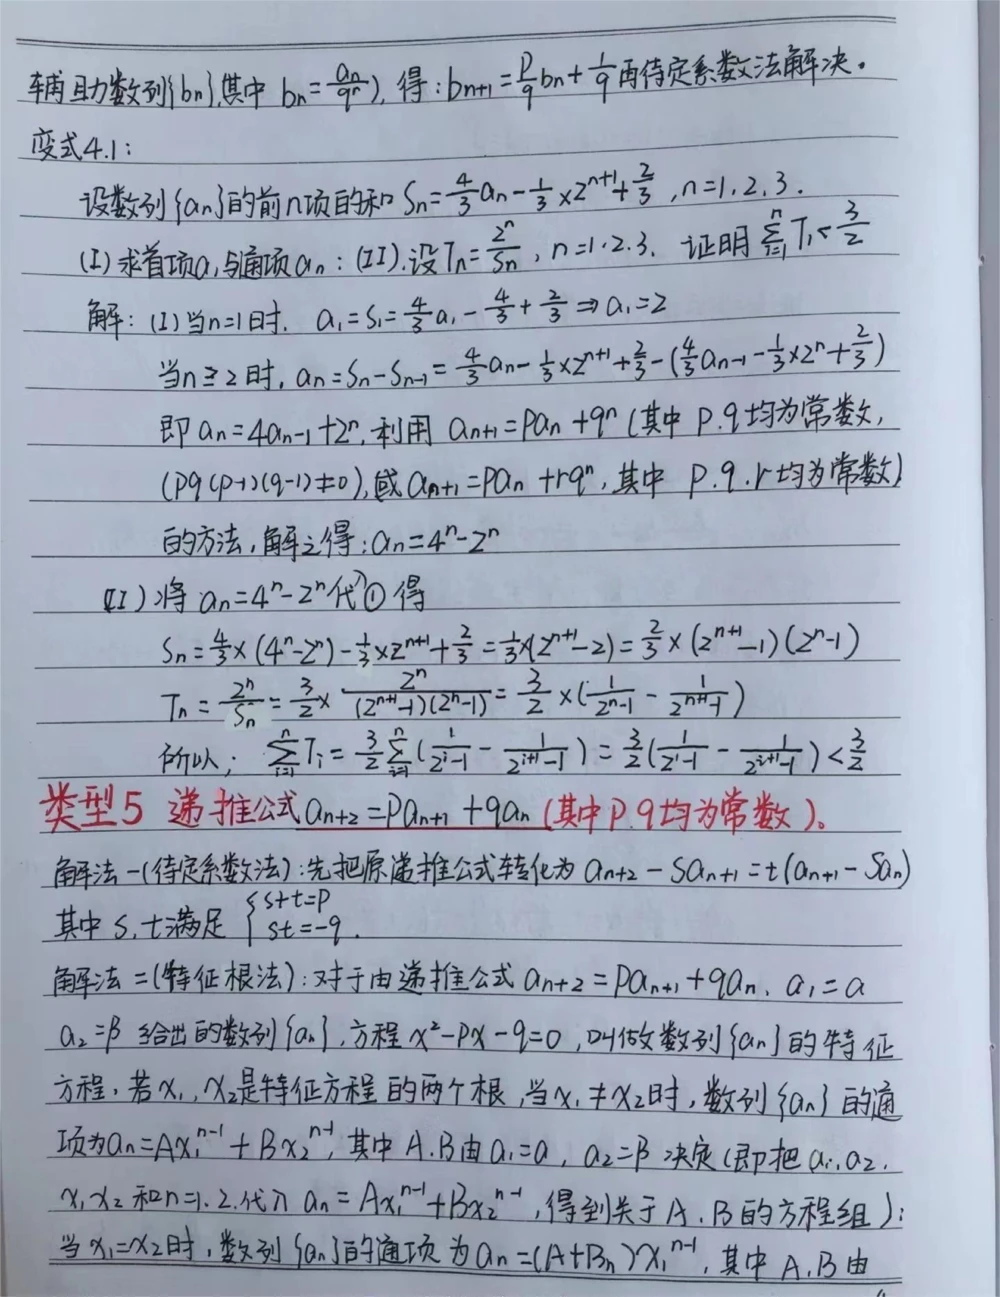 辅助数列{bn},其中 bn=an/qⁿ), 得:bn+1=p/q bn+1/q再待定系数法解决。
变式4.1:
设数列{an}的前n项的和 Sn=4/3 an-1/3×2ⁿ⁺¹+2/3 ,n=1.2.3.
(I)求首项a,与通项an:(II).设Tn=2ⁿ/Sn, n=1.2.3. 证明 ∑ⁿᵢ₌₁ Tᵢ<3/2
解:(I)当n=1时. a₁=S₁=4/3 a₁-4/3+2/3⇒a₁=2
当n≥2时,an=Sn-Sn-1=4/3 an-1/3×2ⁿ⁺¹+2/3-(4/3 an-1-1/3×2ⁿ+2/3)
即an=4an-1+2ⁿ,利用 an+1=pan+qⁿ(其中 p.q均为常数,
(pq(p-1)(q-1)≠0),或an+1=pan+rqⁿ,其中 p.q.r均为常数)
的方法,解之得:an=4ⁿ-2ⁿ
(II)将 an=4ⁿ-2ⁿ代①得
Sn=4/3×(4ⁿ-2ⁿ)-1/3×2ⁿ⁺¹+2/3=1/3×(2ⁿ⁺¹-2)=2/3×(2ⁿ⁺¹-1)(2ⁿ-1)
Tn=2ⁿ/Sn=3/2×2ⁿ/(2ⁿ⁺¹-1)(2ⁿ-1)=3/2×(1/2ⁿ-1 - 1/2ⁿ⁺¹-1)
所以; ∑ⁿᵢ₌₁ Tᵢ=3/2∑ⁿᵢ₌₁(1/2ⁱ-1 - 1/2ⁱ⁺¹-1)=3/2(1/2¹-1 - 1/2ⁱ⁺¹-1)<3/2
类型5 递推公式an+2=pan+1+qan(其中p.q均为常数)。
解法一(待定系数法):先把原递推公式转化为an+2-San+1=t(an+1-San)
其中s,t满足{s+t=p st=-q.
解法二(特征根法):对于由递推公式an+2=pan+1+qan, a₁=a
a₂=β 给出的数列{an},方程x²-px-q=0,叫做数列{an}的特征
方程,若x₁,x₂是特征方程的两个根,当x₁≠x₂时,数列{an}的通
项为an=Ax₁ⁿ⁻¹+Bx₂ⁿ⁻¹,其中A.B由a₁=a, a₂=β决定(即把a₁.a₂.
x₁x₂和n=1.2.代入 an=Ax₁ⁿ⁻¹+Bx₂ⁿ⁻¹,得到关于A.B的方程组);
当x₁=x₂时,数列{an}的通项为an=(A+Bn)x₁ⁿ⁻¹,其中A.B由